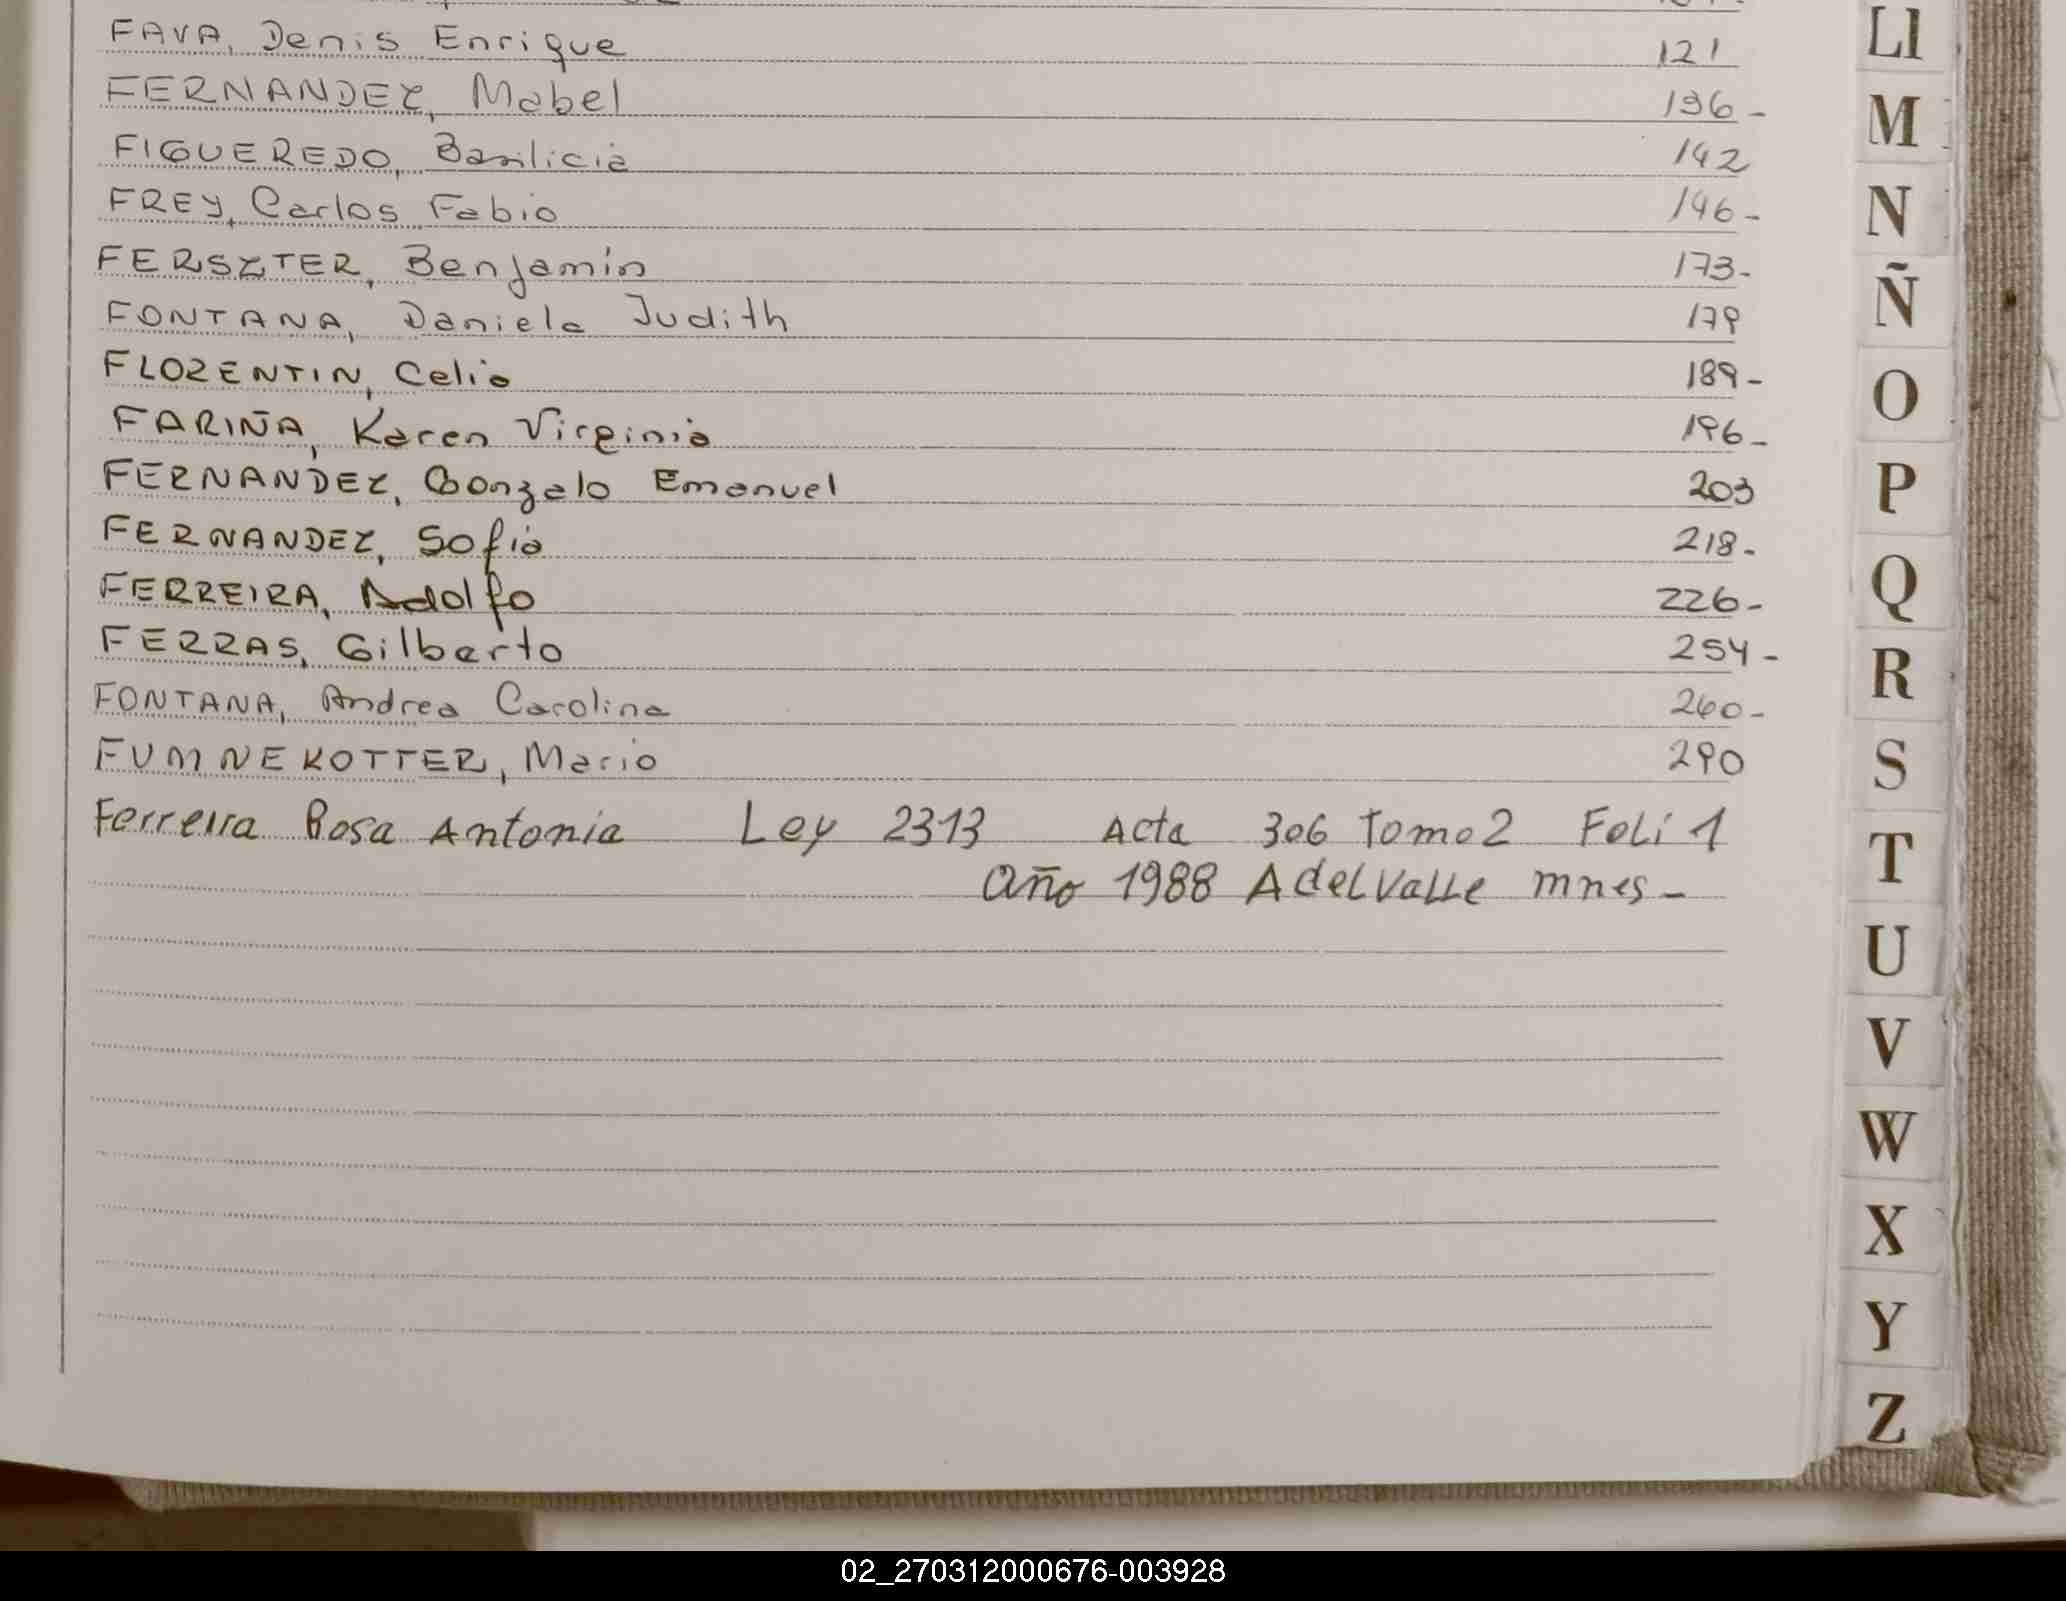 FAVA, Denis Enrique 121
FERNANDEZ, Mabel 136-
FIGUEREDO, Basilicia 142
FREY, Carlos Fabio 146-
FERSZTER, Benjamin 173-
FONTANA, Daniela Judith 179
FLORENTIN, Celio 189-
FARIÑA, Karen Virginia 196-
FERNANDEZ, Gonzalo Emanuel 203
FERNANDEZ, Sofia 218-
FERREIRA, Adolfo 226-
FERRAS, Gilberto 254-
FONTANA, Andrea Carolina 260-
FUMNEKOTTER, Mario 290
Ferreira Rosa Antonia Ley 2313 Acta 306 Tomo 2 Foli 1
Año 1988 A del Valle mnes-
Ll
M
N
Ñ
O
P
Q
R
S
T
U
V
W
X
Y
Z
02_270312000676-003928